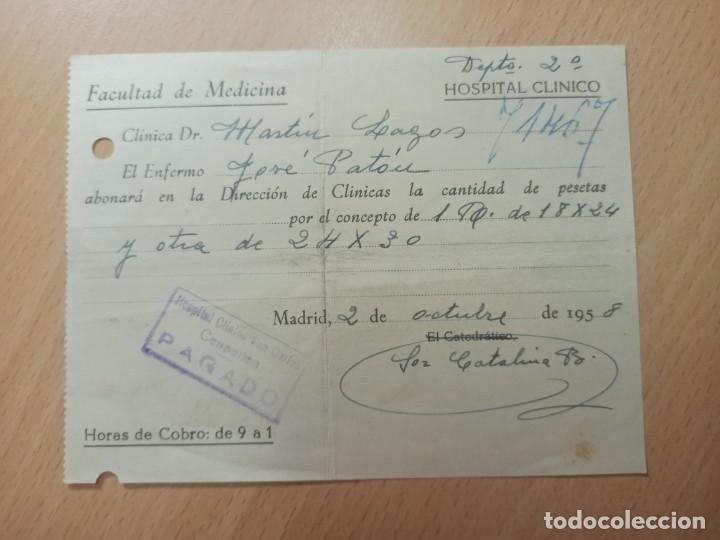 Depto. 2º
Facultad de Medicina
HOSPITAL CLINICO
Clínica Dr. Martín Lagos
El Enfermo José Patón
abonará en la Dirección de Clinicas la cantidad de pesetas
por el concepto de 1 de 18 X 24
y otra de 24 X 30
Madrid, 2 de octubre de 1958
El Catedrático.
Sor Catalina
Hospital Clínico San Carlos
PAGADO
Horas de Cobro: de 9 a 1
todocoleccion
todocoleccion.net